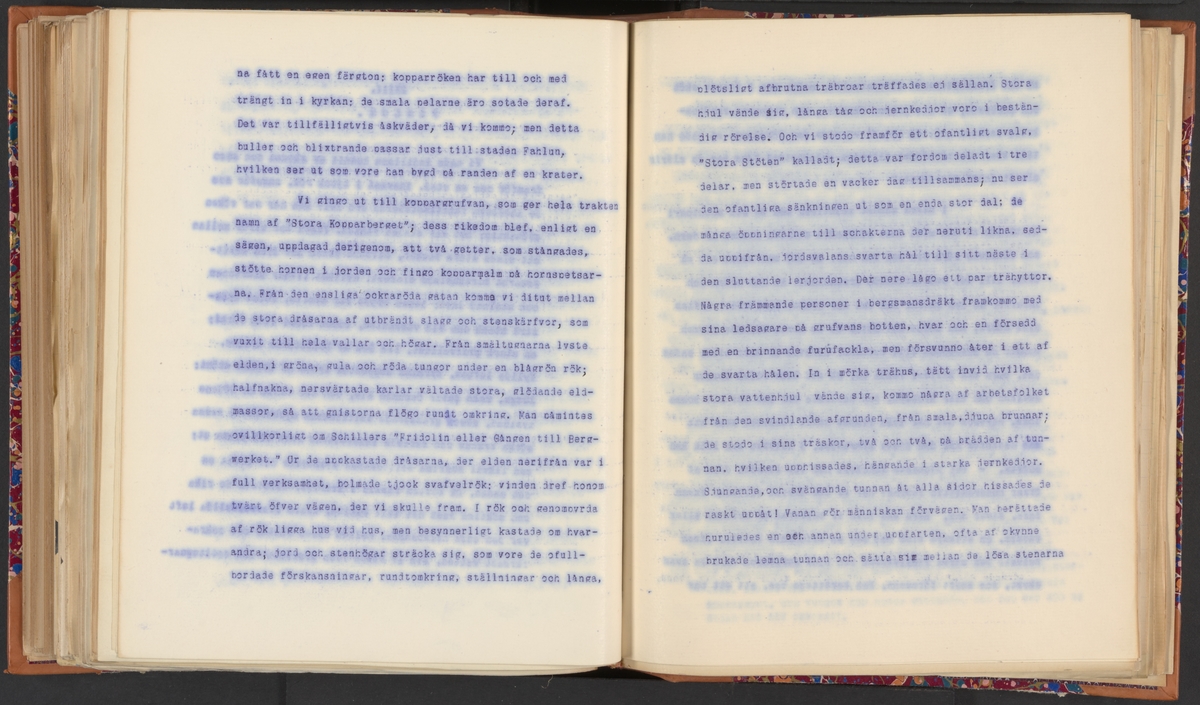 na fått en egen färgton; kopparröken har till och med
trängt in i kyrkan; de smala pelarne äro sotade deraf.
Det var tillfälligtvis åskväder, då vi kommo; men detta
buller och blixtrande passar just till staden Fahlun,
hvilken ser ut som vore han bygd på randen af en krater.
Vi gingo ut till koppargrufvan, som ger hela trakten
namn af "Stora Kopparberget"; dess rikedom blef, enligt en
sägen, uppdagad derigenom, att två getter, som stångades,
stötte hornen i jorden och fingo kopparmalm på hornspetsar-
na. Från den ensliga ockraröda gatan komma vi ditut mellan
de stora dråsarna af utbrändt slagg och stenskärfvor, som
vuxit till hela vallar och högar. Från smältugnarna lyste
elden i gröna, gula och röda tungor under en blågrön rök;
halfnakna, nersvärtade karlar vältade stora, glödande eld-
massor, så att gnistorna flögo rundt omkring. Man påmintes
ovilkorligt om Schillers "Fridolin eller Gången till Berg-
werket." Ur de uppkastade dråsarna, der elden nerifrån var i
full verksamhet, bolmade tjock svafvelrök; vinden dref honom
tvärt öfver vägen, der vi skulle fram. I rök och genomovrda
af rök ligga hus vid hus, men besynnerligt kastade om hvar-
andra; jord och stenhögar sträcka sig, som vore de ofull-
bordade förskansningar, rundtomkring, ställningar och långa,
plötsligt afbrutna träbroar träffades ej sällan. Stora
hjul vände sig, långa tåg och jernkedjor voro i bestän-
dig rörelse. Och vi stodo framför ett ofantligt svalg,
"Stora Stöten" kalladt; detta var fordom deladt i tre
delar, men störtade en vacker dag tillsammans; nu ser
den ofantliga sänkningen ut som en enda stor dal; de
många öppningarne till schakterna der nertill likna, sed-
da uppifrån, jordsvalans svarta hål till sitt näste i
den sluttande lerjorden. Der nere lågo ett par trähyttor.
Några främmande personer i bergsmansdräkt framkommo med
sina ledsagare på grufvans botten, hvar och en försedd
med en brinnande furufackla, men försvunno åter i ett af
de svarta hålen. In i mörka trähus, tätt invid hvilka
stora vattenhjul vände sig, kommo några af arbetsfolket
från den svindlande afgrunden, från smala, djupa brunnar;
de stodo i sina träskor, två och två, på brädden af tun-
nan, hvilken upphissades, hängande i starka jernkedjor.
Sjungande, och svängande tunnan åt alla sidor hissades de
raskt uppåt! Vanan gör människan förvägen. Man berättade
huruledes en och annan under uppfarten, ofta af okynne
brukade lemna tunnan och sätta sig mellan de lösa stenarna